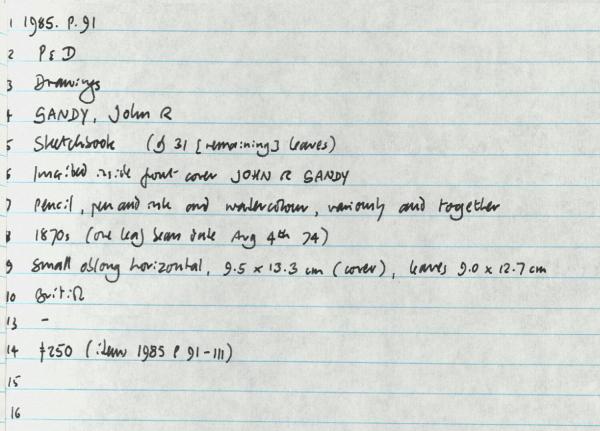 1 1985. P. 91
2 P & D
3 Drawings
4 SANDY, John R
5 Sketchbook (of 31 [remaining] leaves)
6 Inscribed inside front cover JOHN R SANDY
7 Pencil, pen and ink and watercolour, variously and together
8 1870s (one leaf bears date Aug 4th 74)
9 Small oblong horizontal, 9.5 x 13.3 cm (cover), leaves 9.0 x 12.7 cm
10 British
13 -
14 £250 (items 1985 P 91-111)
15
16